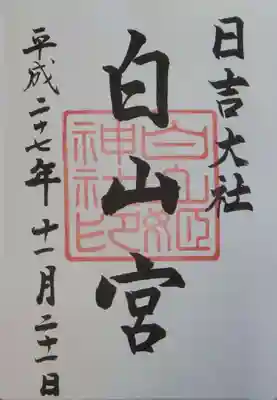 日吉大社
白山宮
白山姫神社印
平成二十七年十一月二十一日